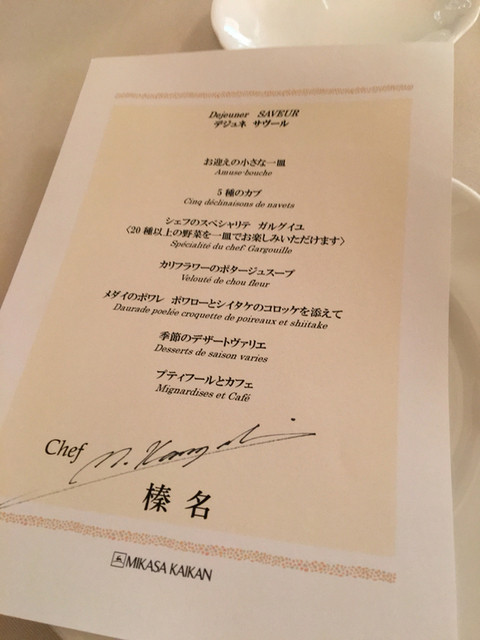 Dejeuner SAVEUR
デジュネ サヴール
お迎えの小さな一皿
Amuse-bouche
5種のカブ
Cinq déclinaisons de navets
シェフのスペシャリテ ガルグイユ
〈20種以上の野菜を一皿でお楽しみいただけます〉
Spécialité du chef Gargouille
カリフラワーのポタージュスープ
Velouté de chou fleur
メダイのポワレ ポワローとシイタケのコロッケを添えて
Daurade poelée croquette de poireaux et shiitake
季節のデザートヴァリエ
Desserts de saison varies
プティフールとカフェ
Mignardises et Café
Chef
榛名
MIKASA KAIKAN